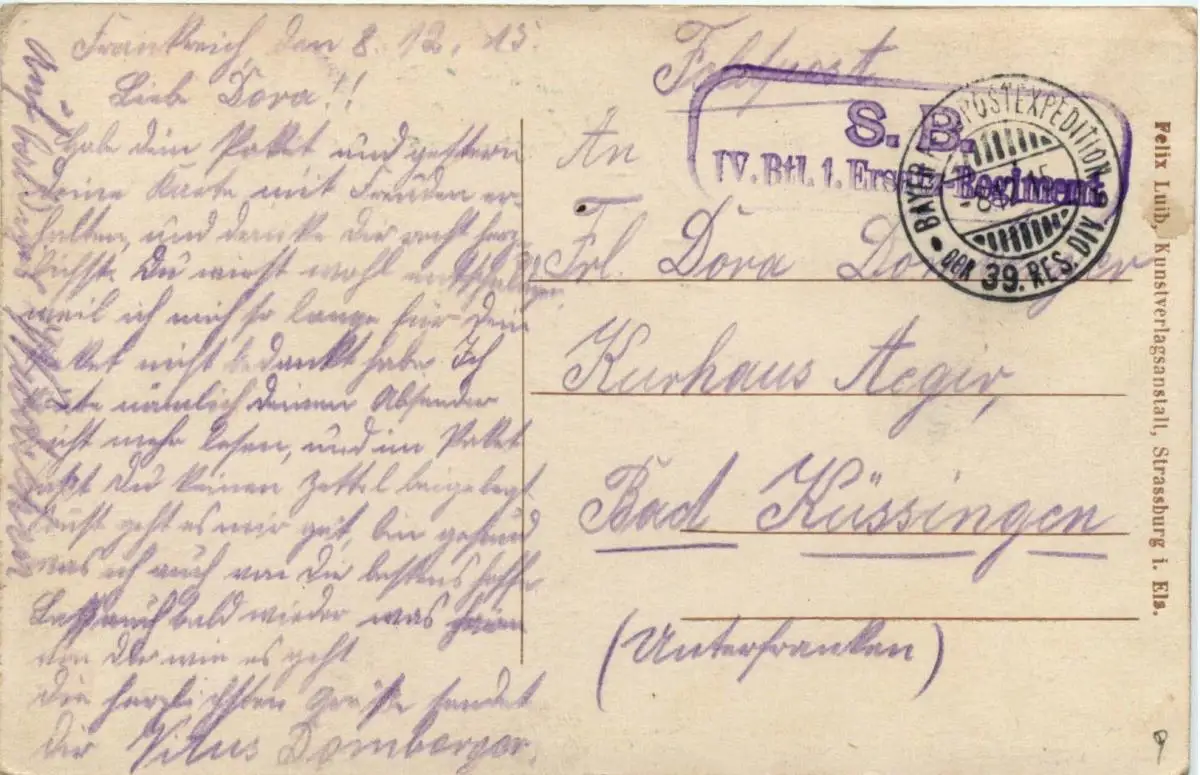 Frankreich, den 8. 12. 15.
Lieb Dora!!
Habe dein Paket und gestern
deine Karte mit Freuden er-
halten, und danke dir recht herz-
lichst. Du wirst wohl entschuldigen
weil ich mich so lange für dein
Paket nicht bedankt habe. Ich
nämlich deinen Absender
nicht mehr lesen, und im Paket
hast Du keinen Zettel beigelegt.
Sonst geht es mir gut, bin gesund
was ich auch von dir bestens hoffe.
Lass auch bald wieder was hören
von dir wie es geht
Die herzlichsten Grüße sendet
dir Vitus Domberger.
Auf
Feldpost
S. B.
IV. Btl. 1. Ersatz-Regiment
BAYER. POSTEXPEDITION
DER 39. RES. DIV.
An
Frl. Dora
Kurhaus Aegir,
Bad Küssingen
(Unterfranken)
Felix Luib, Kunstverlagsanstalt, Strassburg i. Els.